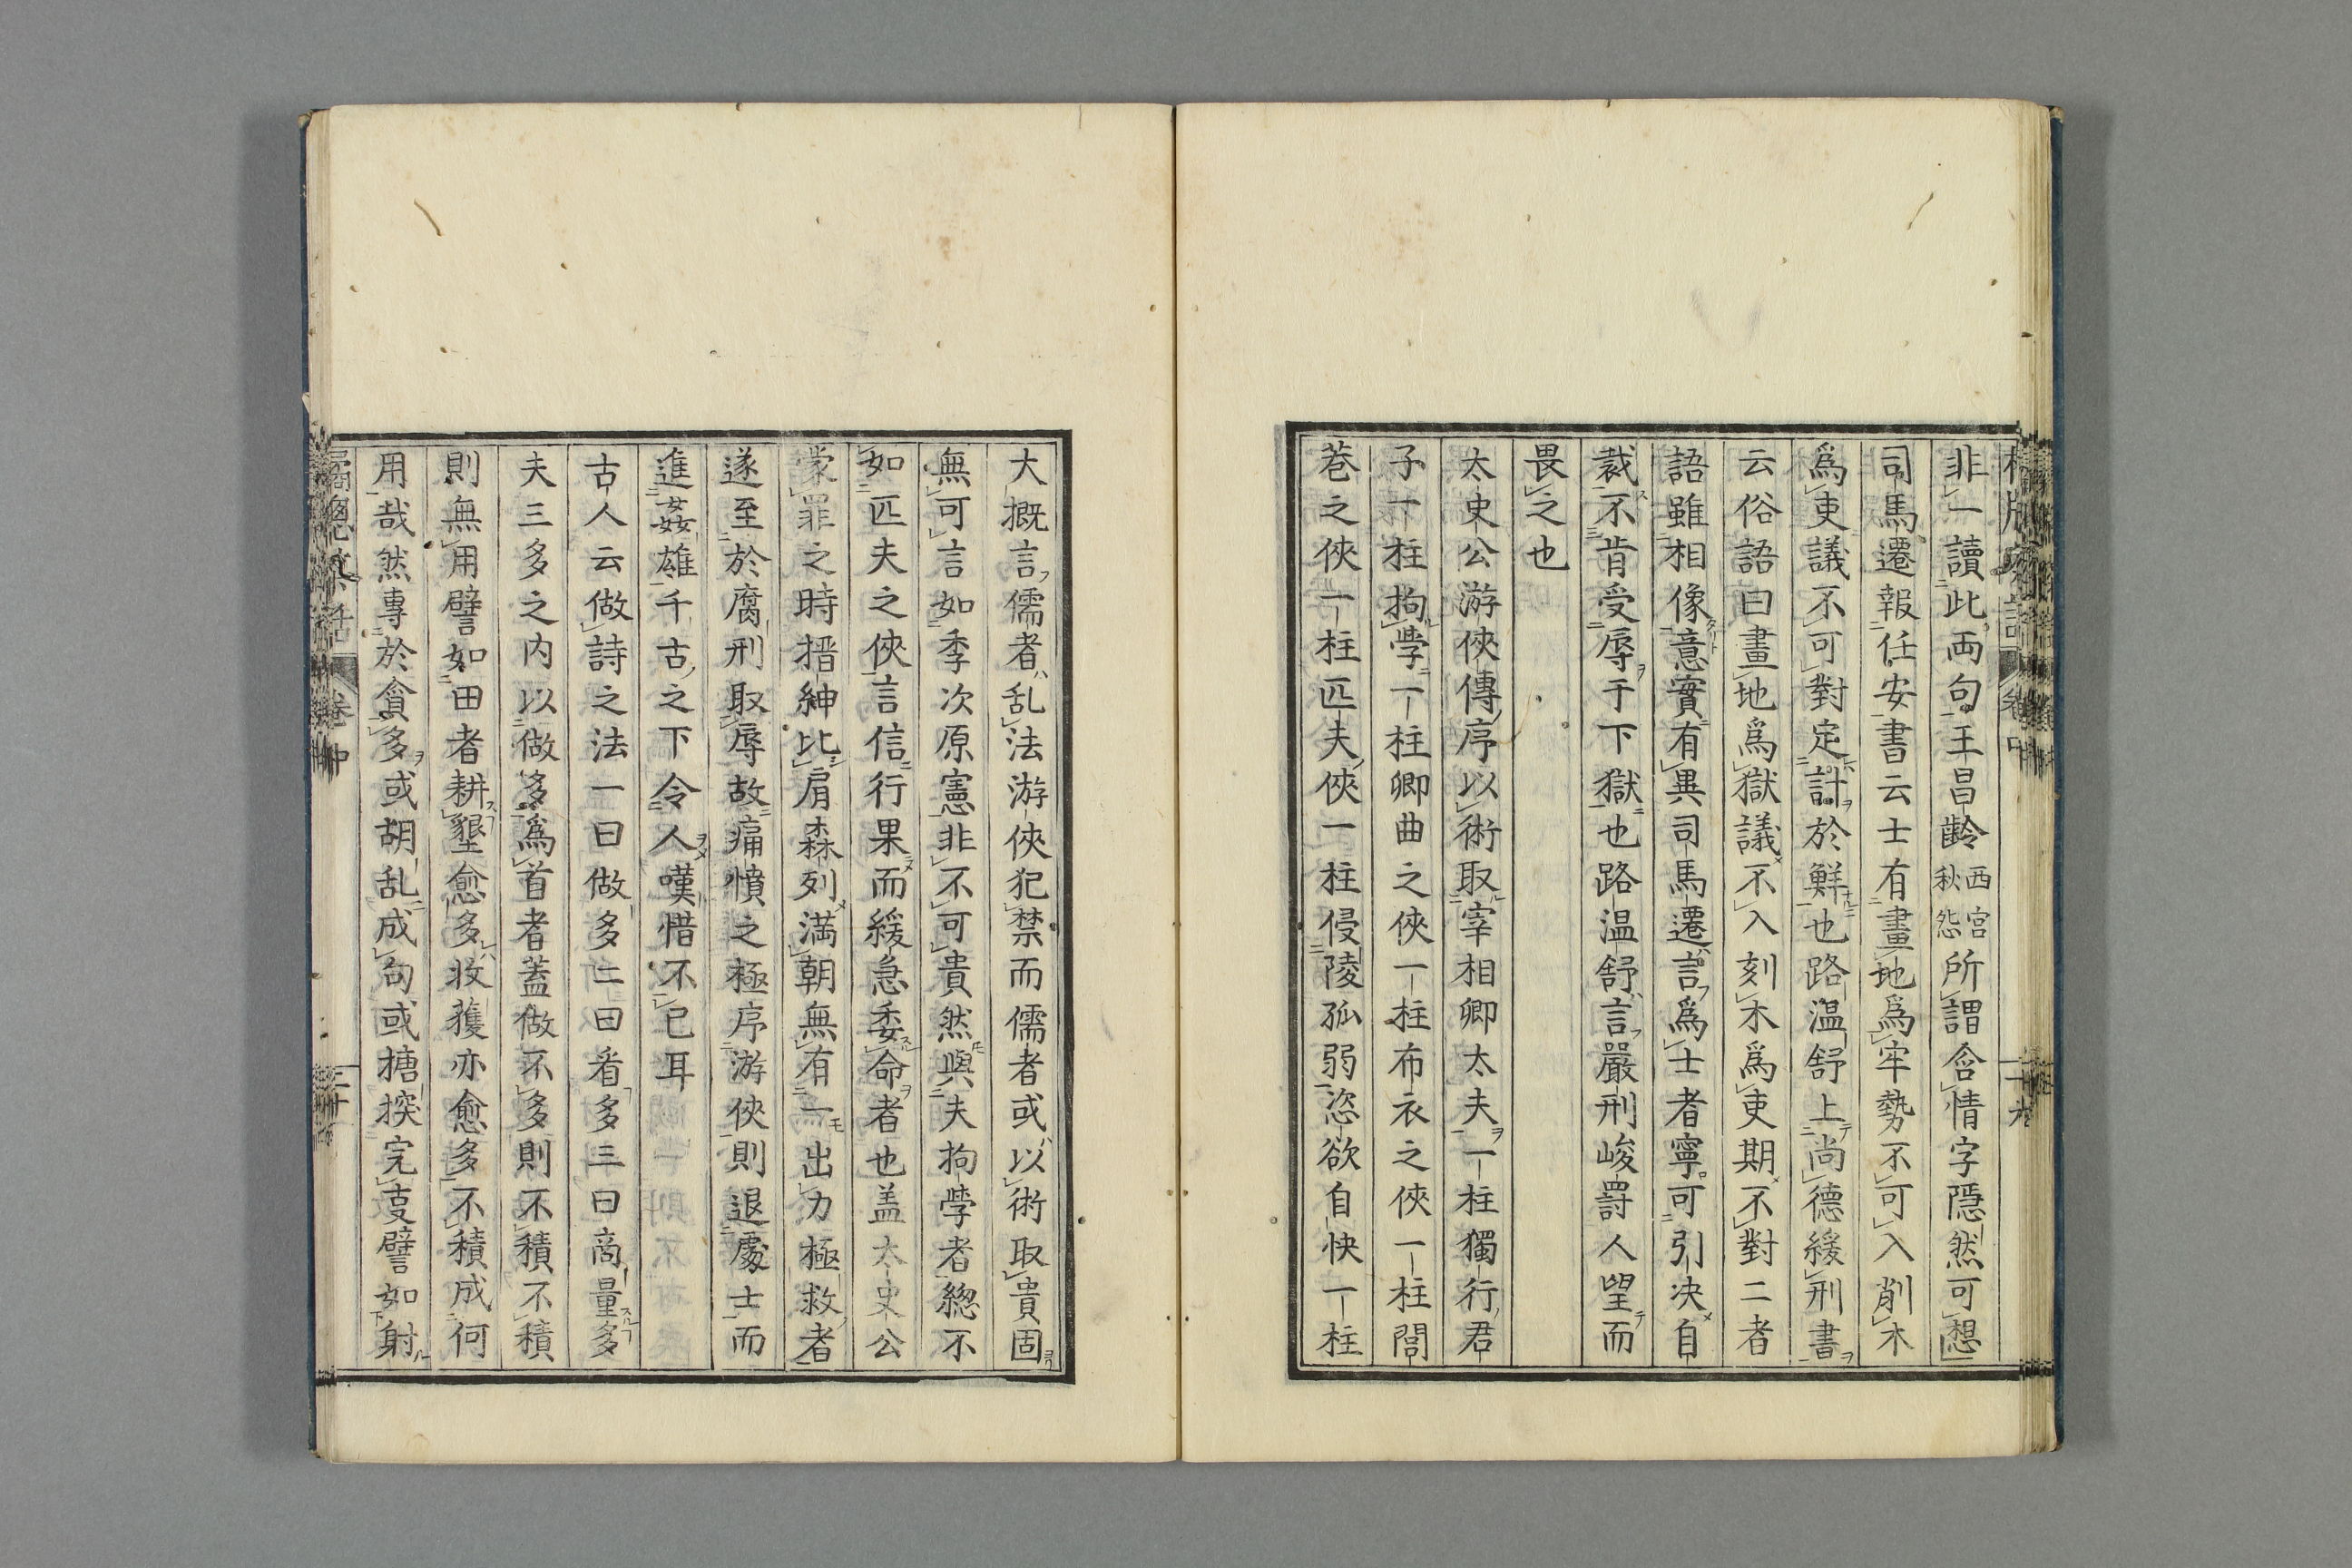 非一讀此両句王昌齡西宮秋怨所謂含情字隱然可想
司馬遷報任安書云士有畫地爲牢勢不可入削木
爲吏議不可對定計於鮮也路温舒上尚德緩刑書
云俗語曰畫地爲獄議不入刻木爲吏期不對二者
語雖相像意實有異司馬遷言爲士者寧可引决自
裁不肯受辱于下獄也路温舒言嚴刑峻罸人望而
畏之也
太史公游俠傳序以術取宰相卿太夫一柱獨行君
子一柱拘學一柱卿曲之俠一柱布衣之俠一柱閭
巷之俠一柱匹夫俠一柱侵陵孤弱恣欲自快一柱
二十九
大概言儒者乱法游俠犯禁而儒者或以術取貴固
無可言如季次原憲非不可貴然與夫拘學者緫不
如匹夫之俠言信行果而緩急委命者也盖太史公
蒙罪之時搢紳比肩森列満朝無有一出力極救者
遂至於腐刑取辱故痛憤之極序游俠則退處士而
進姦雄千古之下令人嘆惜不已耳
古人云做詩之法一曰做多二曰看多三曰商量多
夫三多之内以做多爲首者蓋做不多則不積不積
則無用譬如田者耕墾愈多收獲亦愈多不積成何
用哉然專於貪多或胡乱成句或搪揬完叓譬如射
卷中
三十